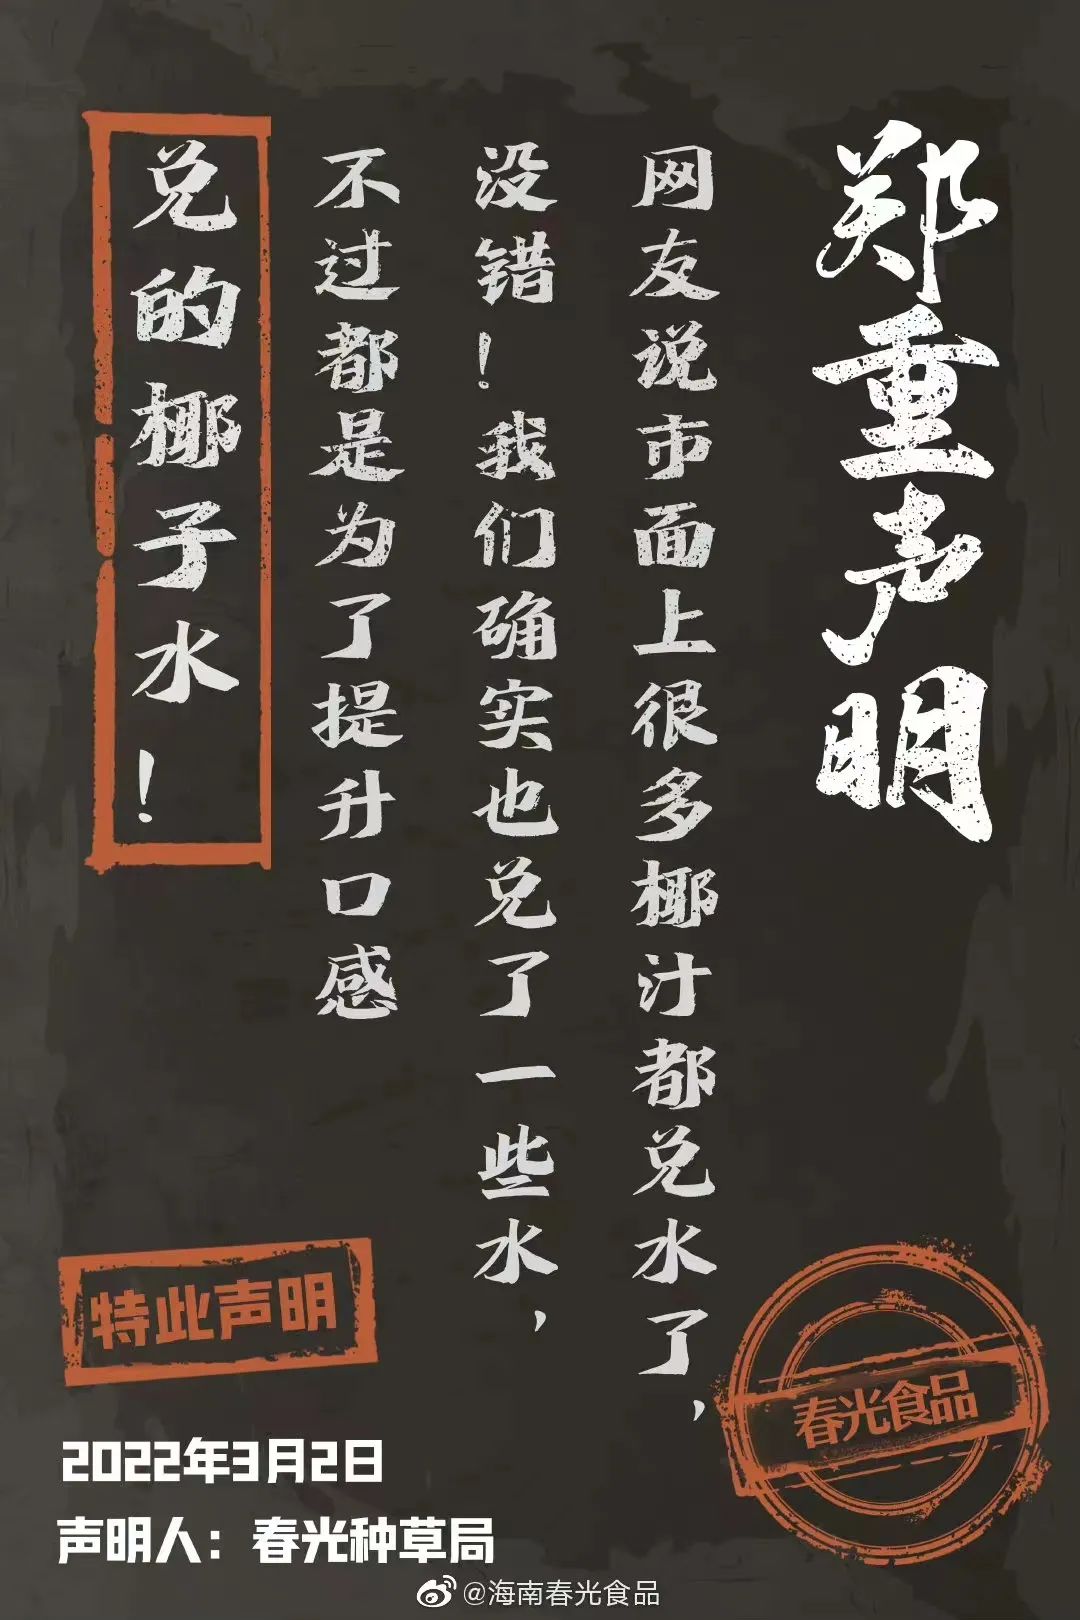 郑重声明
网友说市面上很多椰汁都兑水了，
没错！我们确实也兑了一些水，
不过都是为了提升口感
兑的椰子水！
特此声明
春光食品
2022年3月2日
声明人：春光种草局
@海南春光食品